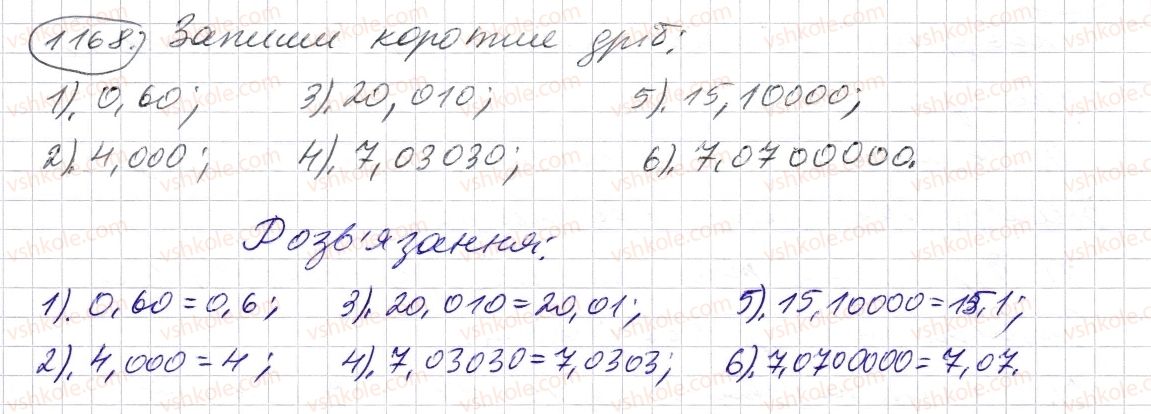 1168.) Запиши коротше дріб:
1). 0,60; 3). 20,010; 5). 15,10000;
2). 4,000; 4). 7,03030; 6). 7,0700000.
Розв'язання:
1). 0,60 = 0,6; 3). 20,010 = 20,01; 5). 15,10000 = 15,1;
2). 4,000 = 4; 4). 7,03030 = 7,0303; 6). 7,0700000 = 7,07.